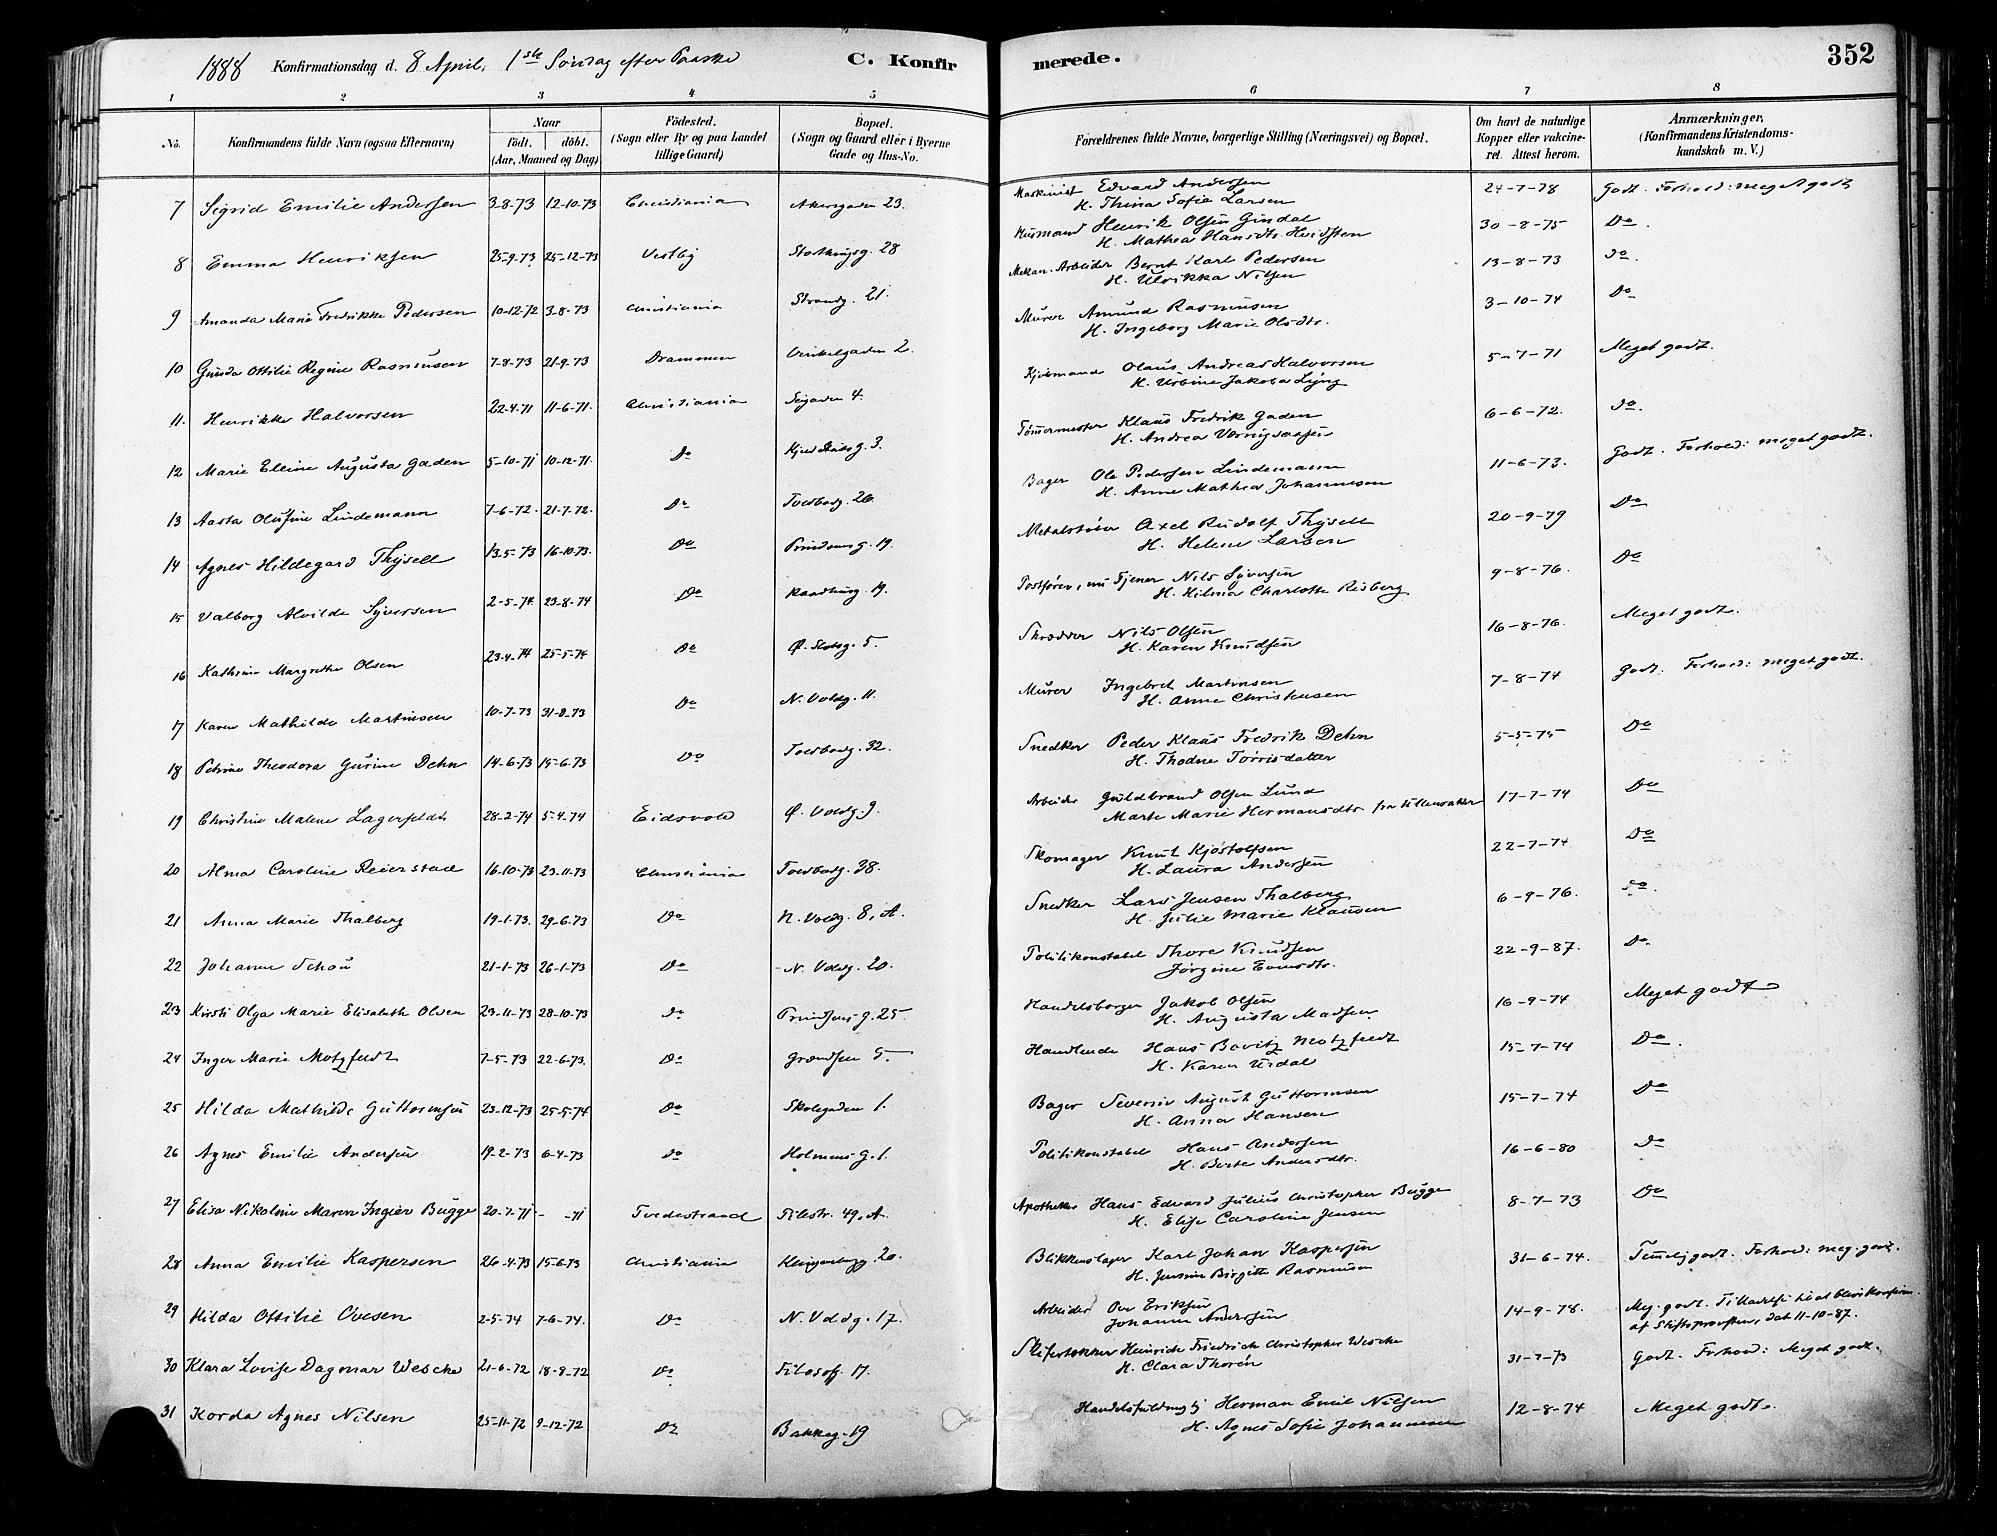 1888 Konfirmationsdag d. 8 April, 1ste Søndag efter Paaske C. Konfirmerede. 352
1 2 3 4 5 6 7 8
No. Konfirmandens fulde Navn (ogsaa Efternavn) Naar født, døbt. (Aar, Maaned og Dag) Fødested. (Sogn eller By og paa Landet tillige Gaard) Bopæl. (Sogn og Gaard eller i Byerne Gade og Hus-No. Forældrenes fulde Navne, borgerlige Stilling (Næringsvei) og Bopæl. Om havt de naturlige Kopper eller vakcineret. Attest herom. Anmærkninger, (Konfirmandens Kristendomskundskab m. V.)
7 Sigrid Emilie Andersen 3-8-73 12-10-73 Christiania Akersgaden 23. Maskinist Edvard Andersen H. Thina Sofie Larsen 24-7-78 Godt. Forhold: meget godt
8 Emma Henriksen 25-9-73 25-12-73 Vestby 28 Husmand Henrik Olsen Gindal H. Mathea Hansdtr. Hvidsten 30-8-75 Do.
9 Amanda Marie Fredrikke Pedersen 10-12-72 3-8-73 Christiania Strandg. 21. Mekan. Arbeider Bernt Karl Pedersen H. Ulrikka Nilsen 13-8-73 do.
10 Gunda Ottilie Regine Rasmussen 7-8-73 21-9-73 Drammen Vinkelgaden 2. Murer Amund Rasmussen H. Ingeborg Marie Olsdtr. 3-10-74 Do
11. Henrikke Halvorsen 22-4-71 11-6-71. Christiania Søgaden 4. Kjøbmand Olaus Andreas Halvorsen H. Urbine Jakoba Lyng 5-7-71 Meget godt.
12 Marie Elline Augusta Gaden 5-10-71 10-12-71. Do g. 3. Tømmermester Klaus Fredrik Gaden H. Andrea 6-6-72. do.
13 Aasta Olufine Lindemann 7-6-72. 21-7-72. Do Toldbodg. 26 Bager Ole Pedersen Lindemann H. Anne Mathea Johannesen 11-6-73. Godt. Forhold: meget godt.
14 Agnes Hildegard Thysell 13-5-73 16-10-73. Do Prindsens g. 19. Metalstøber Axel Rudolf Thysell H. Helene Larsen 20-9-79 Do
15 Valborg Alvilde Syversen 2-5-74 23-8-74 Do Raadhusg. 19. Postfører, nu Tjener Nils Syversen H. Hilma Charlotte Risberg 9-8-76. Do
16 Kathrine Margrethe Olsen 23-4-74 25-5-74 Do Ø. Slotsg. 5. Skrædder Nils Olsen H. Karen Knudsen 16-8-76. Meget godt.
17 Karen Mathilde Martinsen 10-7-73 31-8-73 Do N. Voldg. 11. Murer Ingebret Martinsen H. Anne Christensen 7-8-74 Godt. Forhold: meget godt.
18 Petrine Theodora Gurine Dehn 14-6-73 15-6-73 Do Toldbodg. 32. Snedker Peder Klaus Fredrik Dehn H. Thodne Torrisdatter 5-5-75 Do
19 Christine Malene Lagerfeldt 28-2-74 5-4-74 Eidsvold Ø. Voldg. 9. Arbeider Guldbrand Olsen Lund Marte Marie Hermansdtr. fra Ullensaker 17-7-74 Do
20 Alma Caroline Reierstad 16-10-73 23-11-73 Christiania Toldbodg. 38. Skomager Knut Kjøstolfsen H. Laura Andersen 22-7-74 Do
21 Anna Marie Thalberg 19-1-73. 29-6-73 Do N. Voldg. 8, A. Snedker Lars Jensen Thalberg H. Julie Marie Klausen 6-9-76. do.
22 Johanne Schou 21-1-73 26-1-73 Do N. Voldg. 20. Politikonstabel Thore Knudsen Jørgine Evensdtr. 22-9-87. Do.
23 Kirsti Olga Marie Elisabeth Olsen 23-11-73 28-10-73 Do Prindsens g. 25. Handelsborger Jakob Olsen H. Augusta Madsen 16-9-74 Meget godt
24 Inger Marie Motzfeldt 7-5-73 22-6-73. Do Grændsen 5. Handlende Hans Bovitz Motzfeldt H. Karen Urdal 15-7-74 Do.
25 Hilda Mathilde Guttormsen 23-12-73 25-5-74 Do Skolegaden 1. Bager Severin August Guttormsen H. Anna Hansen 15-7-74 Do
26 Agnes Emilie Andersen 19-2-73 6-4-73 Do Holmens g. 1. Politikonstabel Hans Andersen H. Berte Andersdtr. 16-6-80 Do
27 Elisa Nikoline Maren Ingier Bugge 20-7-71 - -71 Tvedestrand Pilestr. 49, A. Apotheker Hans Edvard Julius Christopher Bugge H. Elise Caroline Jensen 8-7-73 Do
28 Anna Emilie Kaspersen 26-4-73 15-6-73 Christiania Klingenbergg. 20. Blikkenslager Karl Johan Kaspersen H. Jensine Birgitte Rasmussen 31-6-74. Temmelig godt. Forhold: meg. godt.
29 Hilda Ottilie Ovesen 2-5-74 7-6-74. Do N. Voldg. 17. Arbeider Ove Eriksen Johanne Andersen 14-9-78. Meg. godt. Tilladelse til at blive konfirm. af Stiftsprovsten, dat 11-10-87.
30 Klara Lovise Dagmar Wescke 21-6-72 18-8-72 Do Filosof. 17. Heinrich Friedrich Christopher Wescke H. Clara Thorén 31-7-73 Godt. Forhold: Meget godt.
31 Korda Agnes Nilsen 25-11-72 9-12-72 Do Bakkeg. 19 Herman Emil Nilsen H. Agnes Sofie Johannesen 12-8-74 Meget godt.